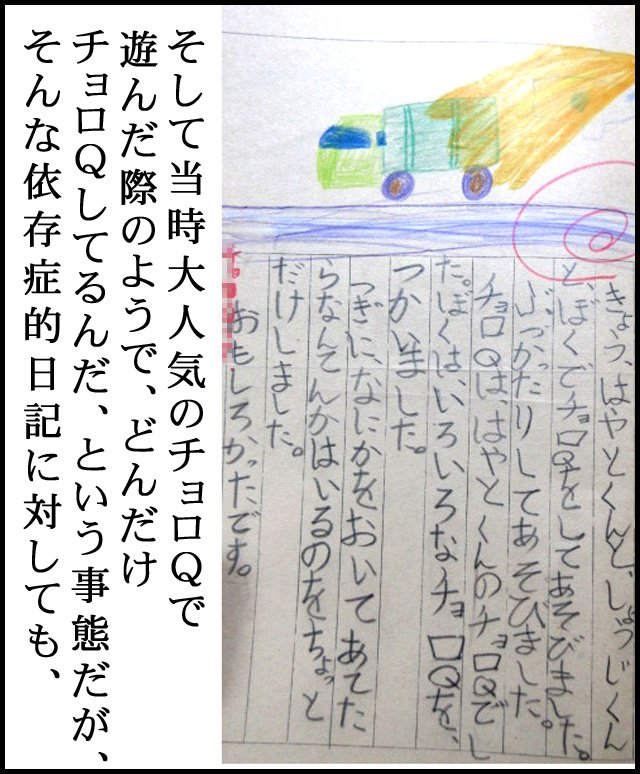 きょう、はやとくんと、しょうじくん
と、ぼくでチョロQをしてあそびました。
ぶつかったりしてあそびました。
チョロQは、はやとくんのチョロQでし
た。ぼくは、いろいろなチョロQを、
つかいました。
つぎに、なにかをおいてあてた
らなんてんかはいるのをちょっと
だけしました。
おもしろかったです。
そして当時大人気のチョロQで
遊んだ際のようで、どんだけ
チョロQしてるんだ、という事態だが、
そんな依存症的日記に対しても、